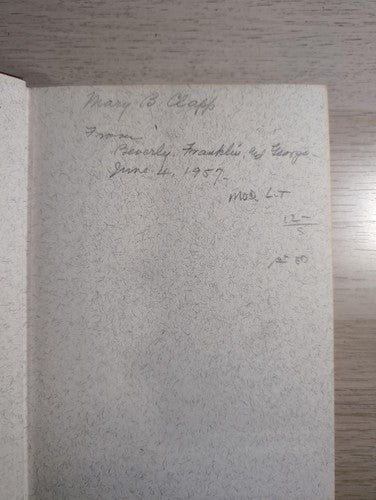 Mary B Clapp
From
Beverly, Franklin, & George
June 4, 1957
Mod Lit
12-